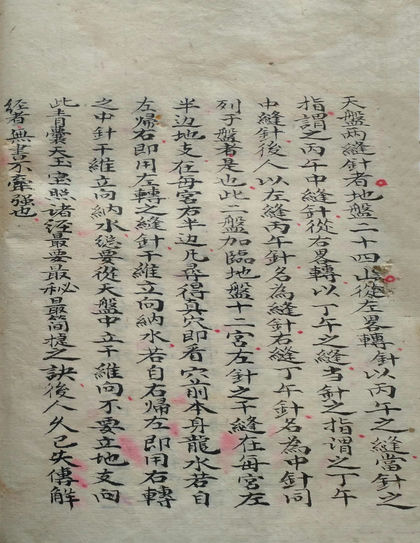 天盤兩縫針者地盤二十四山從左畧轉針以丙午之縫當針之
指謂之丙午中縫針從右畧轉以丁午之縫当針之指謂之丁午
中縫針後人以左縫丙午針名為縫針右縫丁午針名為中針同
列于盤者是也此二盤加臨地盤十二宮左針之干縫在每宮左
半边地支在每宮右半边凡尋得真穴即看穴前本身龍水若自
左帰右即用左轉之縫針干維立向納水若自右帰左即用右轉
之中針干維立向納水緃要從天盤中立干維向不要立地支向
此青囊天玉宝照諸経最要最秘最簡捷之訣後人久已失傳觧
経者無書不牽強也